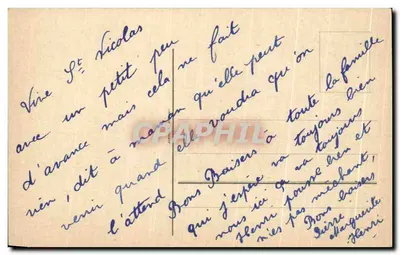 Vive St Nicolas
avec un petit peu
d'avance mais cela ne fait
rien, dit à maman qu'elle peut
venir quand elle voudra qu'on
l'attend
Bons Baisers à toute la famille
qui j'espère va toujours bien
nous ici ça va toujours
Henri pousse bien et
n'es pas méchant,
Bons baisers
Pierre
Marguerite
Henri
CPAPHIL